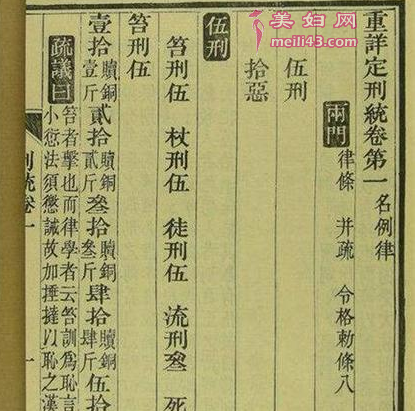 美妇网
meili43.com
重詳定刑統卷第一 名例律
兩門 律條 并疏 令格勅條八
伍刑
拾惡
伍刑
笞刑伍 杖刑伍 徒刑伍 流刑叄 死
笞刑伍
壹拾 贖銅壹斤 貳拾 贖銅貳斤 叄拾 贖銅叄斤 肆拾 贖銅肆斤 伍拾
疏議曰 笞者擊也而律學者云笞訓為恥言
小愆法須懲誡故加捶撻以恥之漢
刑統卷一 一